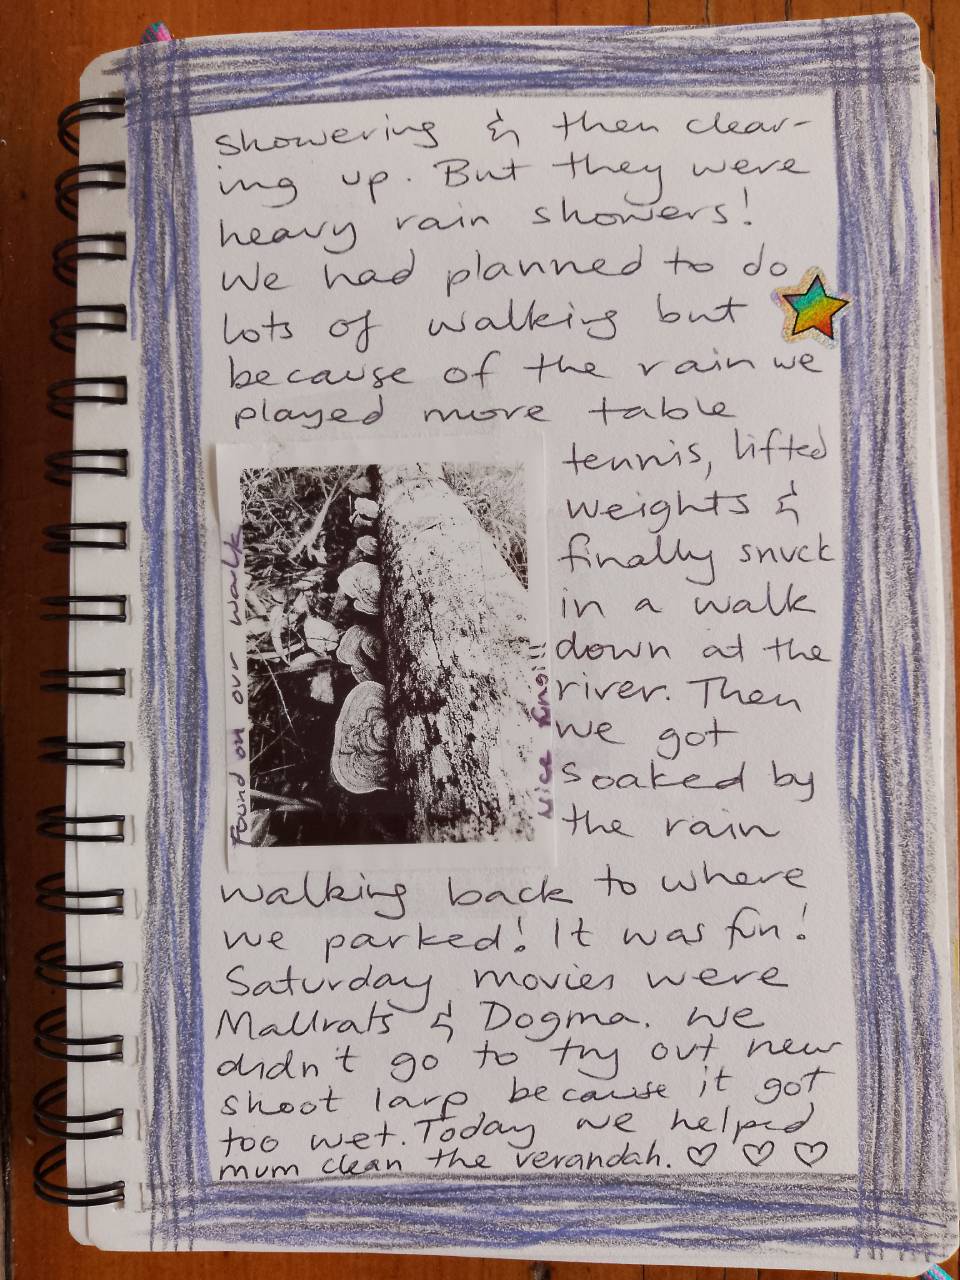 showering & then clear-
ing up. But they were
heavy rain showers!
We had planned to do
lots of walking but
because of the rain we
played more table
tennis, lifted
weights &
finally snuck
in a walk
down at the
river. Then
we got
soaked by
the rain
Found on our walk
Nice fungi!!
walking back to where
we parked! It was fun!
Saturday movies were
Mallrats & Dogma. We
didn't go to try out new
shoot larp because it got
too wet. Today we helped
mum clean the verandah. ♡ ♡ ♡